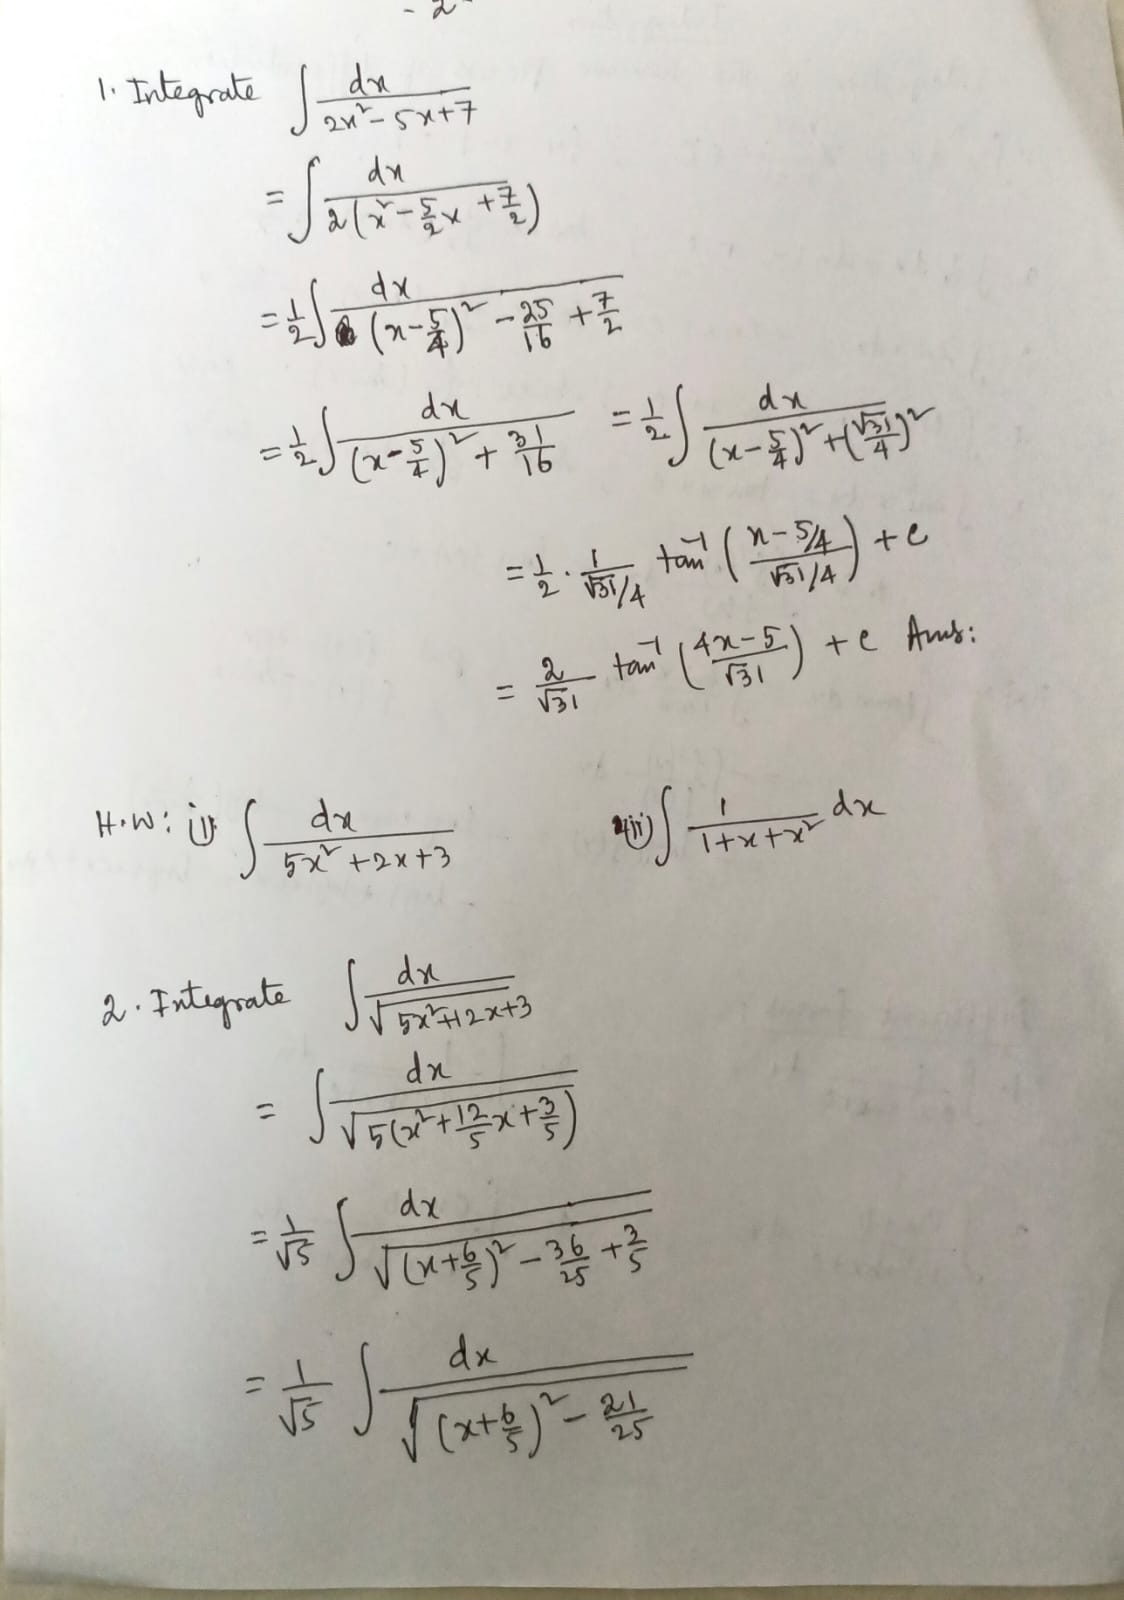 - 2 -
1. Integrate ∫ dx / (2x² - 5x + 7)
= ∫ dx / 2(x² - 5/2 x + 7/2)
= 1/2 ∫ dx / (x - 5/4)² - 25/16 + 7/2
= 1/2 ∫ dx / (x - 5/4)² + 31/16 = 1/2 ∫ dx / (x - 5/4)² + (√31/4)²
= 1/2 · 1/(√31/4) tan⁻¹ ( (x - 5/4) / (√31/4) ) + c
= 2/√31 tan⁻¹ ( (4x - 5) / √31 ) + c Ans:
H.W: i) ∫ dx / (5x² + 2x + 3) ii) ∫ 1 / (1 + x + x²) dx
2. Integrate ∫ dx / √(5x² + 12x + 3)
= ∫ dx / √(5(x² + 12/5 x + 3/5))
= 1/√5 ∫ dx / √((x + 6/5)² - 36/25 + 3/5)
= 1/√5 ∫ dx / √((x + 6/5)² - 21/25)